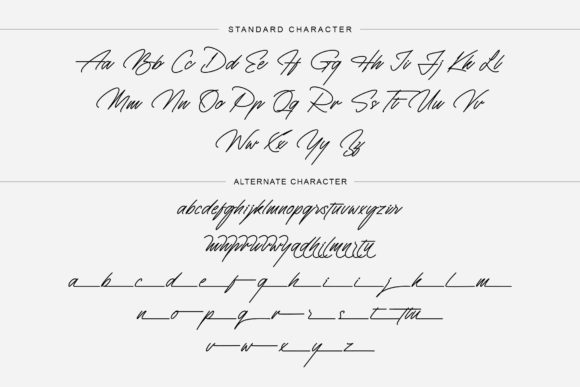 STANDARD CHARACTER
Aa Bb Cc Dd Ee Ff Gg Hh Ii Jj Kk Ll
Mm Nn Oo Pp Qq Rr Ss Tt Uu Vv
Ww Xx Yy Zz
ALTERNATE CHARACTER
abcdefghijklmnopqrstuvwxyzirr
a b c d e f g h i j k l m
n o p q r s t tt u
v w x y z